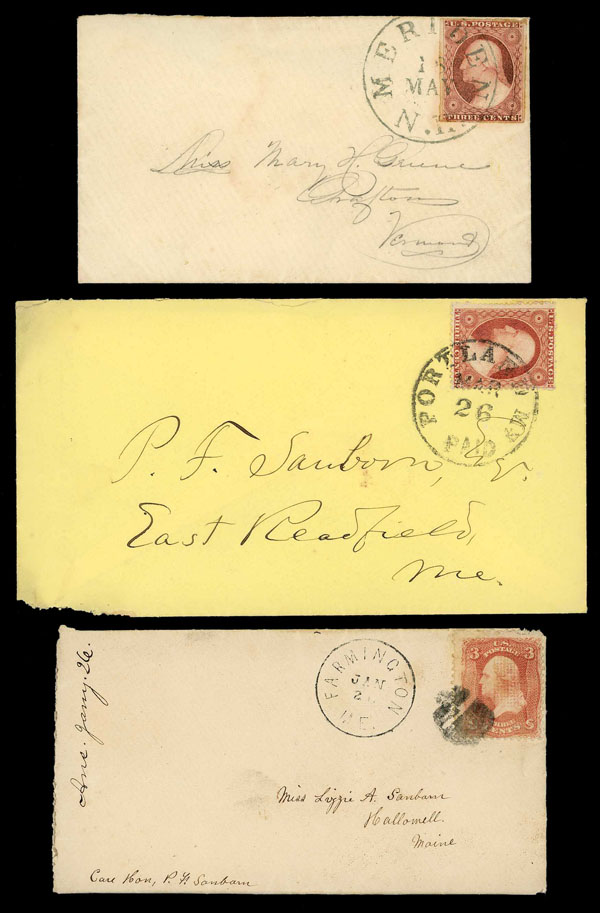 U.S. POSTAGE
THREE CENTS
MERIDEN
MAY
N.H.
Miss Mary H. Greene
Grafton
Vermont
U.S. POSTAGE
THREE CENTS
PORTLAND ME
MAR
26
PAID
P. F. Sanborn, Esq.
East Readfield,
Me.
U.S.
POSTAGE
3
THREE
CENTS
FARMINGTON
JAN
ME.
Ans. Jany. 26.
Miss Lizzie A. Sanborn
Hallowell
Maine
Care Hon, P. F. Sanborn